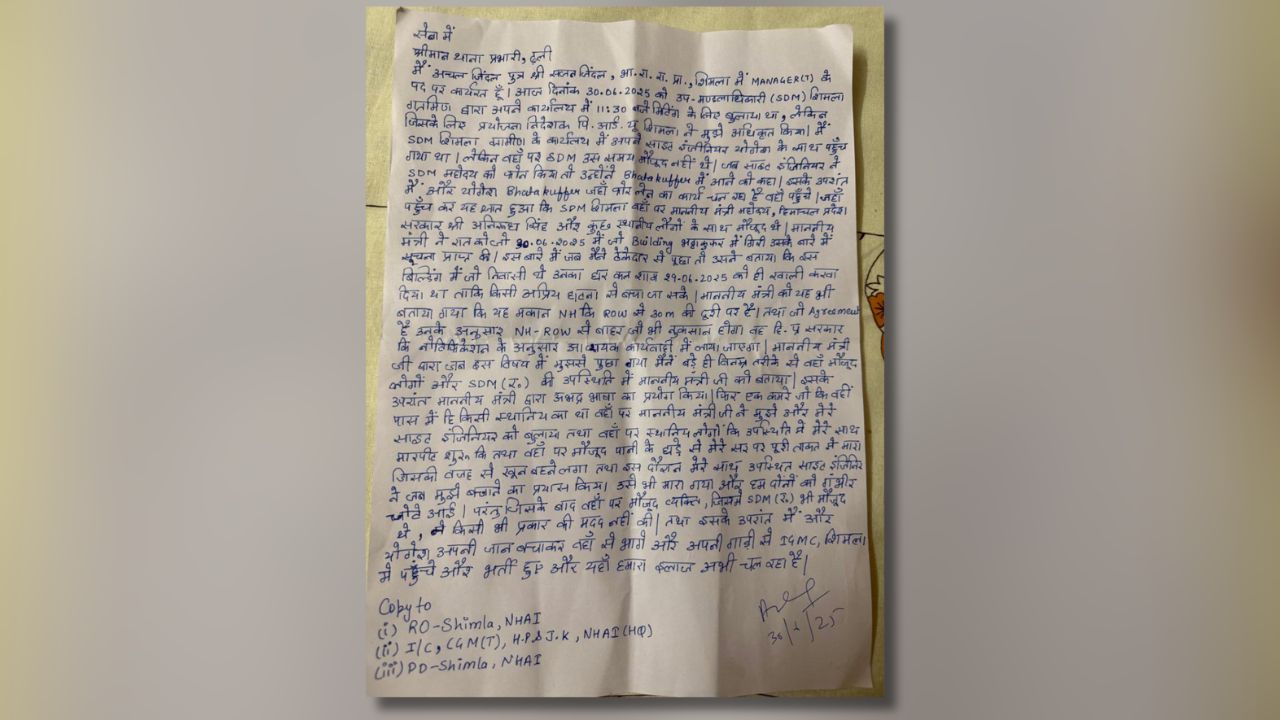 सेवा में
श्रीमान थाना प्रभारी, ढली
मैं अचल जिंदल पुत्र श्री सजन जिंदल, भा.रा.रा.प्रा., शिमला में MANAGER(T) के
पद पर कार्यरत हूँ। आज दिनांक 30.06.2025 को उप-मण्डलाधिकारी (SDM) शिमला
ग्रामिण द्वारा अपने कार्यालय में 11:30 बजे मिटिंग के लिए बुलाया था, लेकिन
जिसके लिए प्रयोजना निदेशक पि. आई. यू शिमला ने मुझे अधिकृत किया। मैं
SDM शिमला ग्रामीण के कार्यालय में अपने साइट इंजीनियर योगेश के साथ पहुँच
गया था। लेकिन वहाँ पर SDM उस समय मौजूद नहीं थे। जब साइट इंजिनियर ने
SDM महोदय को फोन किया तो उन्होंने Bhatakuffer में आने को कहा। इसके उपरांत
मैं और योगेश Bhatakuffer जहाँ फोर लेन का कार्य चल रहा है वहाँ पहुँचे। जहाँ
पहुँच कर यह ज्ञात हुआ कि SDM शिमला वहाँ पर माननीय मंत्री महोदय, हिमाचल प्रदेश
सरकार श्री अनिरुध सिंह और कुछ स्थानीय लोगों के साथ मौजूद थे। माननीय
मंत्री ने रात को जो 30.06.2025 में जो Building भट्टाकुफर में गिरी उसके बारे में
सूचना प्राप्त की। इस बारे में जब मैंने ठेकेदार से पूछा तो उसने बताया कि इस
बिल्डिंग में जो निवासी थे उनका घर कल शाम 29-06-2025 को ही खाली करवा
दिया था ताकि किसी अप्रिय घटना से बचा जा सके। माननीय मंत्री को यह भी
बताया गया कि यह मकान NH कि ROW से 30m की दूरी पर है। तथा जो Agreement
है उनके अनुसार NH-ROW से बाहर जो भी नुकसान होगा वह हि. प्र सरकार
कि नोटिफिकेशन के अनुसार कार्यवाही में लाया जाएगा। माननीय मंत्री
जी द्वारा जब इस विषय में मुझसे पुछा गया मैंने बड़े ही विनम्र तरीके से वहाँ मौजूद
लोगों और SDM (र.) की उपस्थिति में माननीय मंत्री जी को बताया। इसके
उपरांत माननीय मंत्री द्वारा अभद्र भाषा का प्रयोग किया। फिर एक कमरे जो कि वहीं
पास में हि किसी स्थानिय का था वहाँ पर माननीय मंत्री जी ने मुझे और मेरे
साइट इंजिनियर को बुलाया तथा वहाँ पर स्थानिय लोगों कि उपस्थिति में मेरे साथ
मारपीट शुरू कि तथा वहाँ पर मौजूद पानी के घड़े से मेरे सर पर पूरी ताकत से मारा
जिसकी वजह से खून बहने लगा तथा इस दौरान मेरे साथ उपस्थित साइट इंजिनिर
ने जब मुझे बचाने का प्रयास किया। उसे भी मारा गया और हम दोनों को गंभीर
चोटें आई। परंतु जिसके बाद वहाँ पर मौजूद व्यक्ति, जिसमें SDM (र.) भी मौजूद
थे, ने किसी भी प्रकार की मदद नहीं की। तथा इसके उपरांत मैं और
योगेश अपनी जान बचाकर वहाँ से भागे और अपनी गाड़ी से IGMC, शिमला
में पहुँचे और भर्ती हुए और यहाँ हमारा इलाज अभी चल रहा है।
Copy to
(i) RO-Shimla, NHAI
(ii) I/C, CGM(T), H.P & J.K, NHAI (HQ)
(iii) PD-Shimla, NHAI